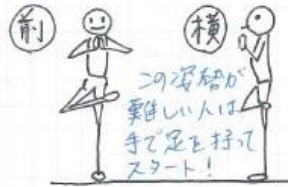 前
横
この姿勢が
難しい人は
手で足を持って
スタート!